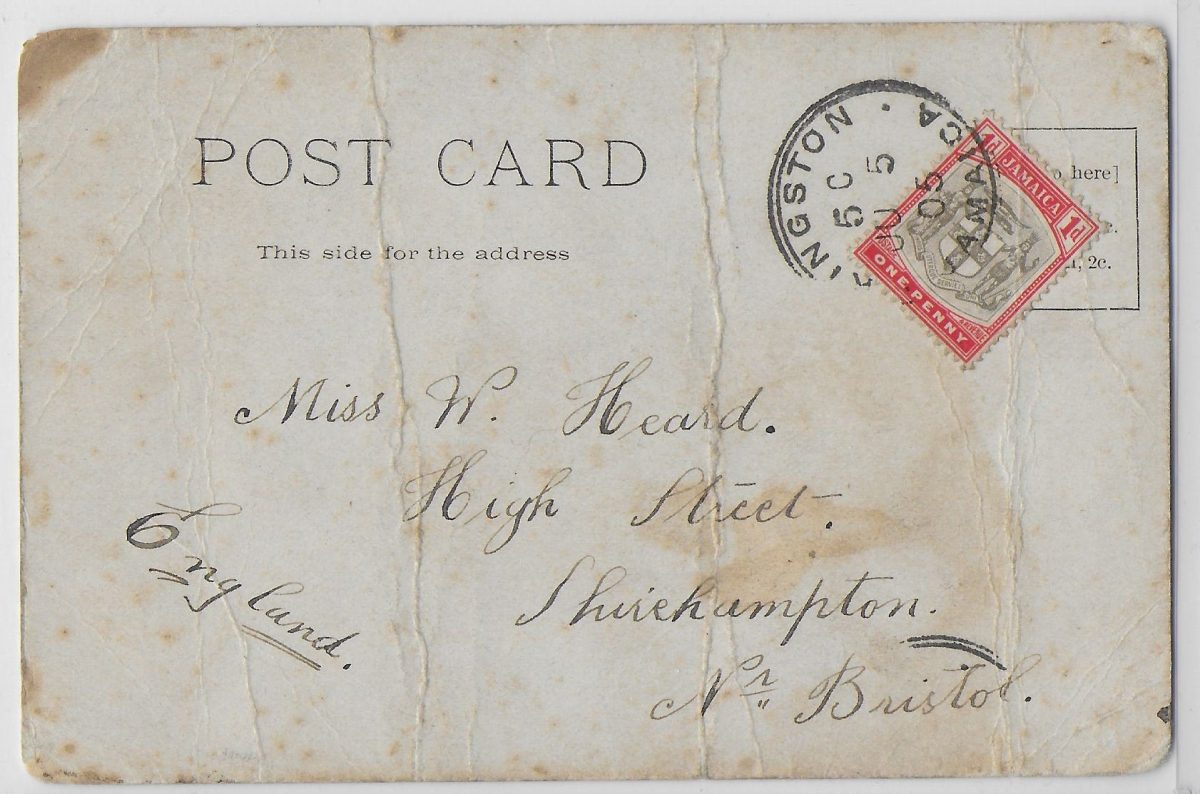 POST CARD
This side for the address
KINGSTON · JAMAICA
5 C
JU 5
05
1d JAMAICA 1d
ONE PENNY
here]
2c.
Miss W. Heard.
High Street.
Shirehampton.
Nr Bristol.
England.